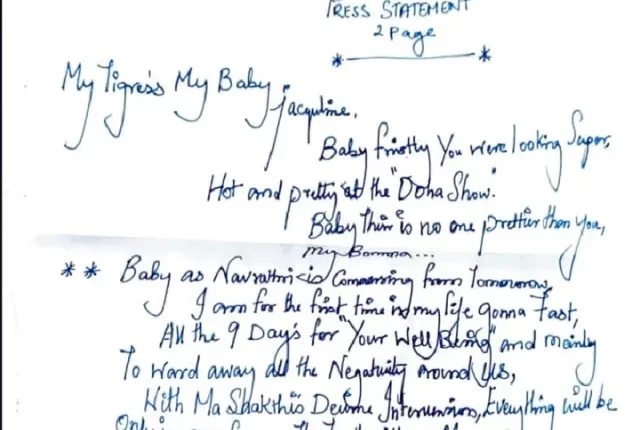 PRESS STATEMENT
2 Page
My Tigress My Baby
Jacquline,
Baby firstly You were looking Super,
Hot and pretty at the "Doha Show".
Baby there is no one prettier than you,
my Bomma...
** Baby as Navrathri is Commencing from Tomorrow,
I am for the first time in my life gonna Fast,
All the 9 Day's for "Your Well Being" and mainly
To ward away all the Negativity around Us,
With Ma Shakthi's Devine Intervension, Everything will be